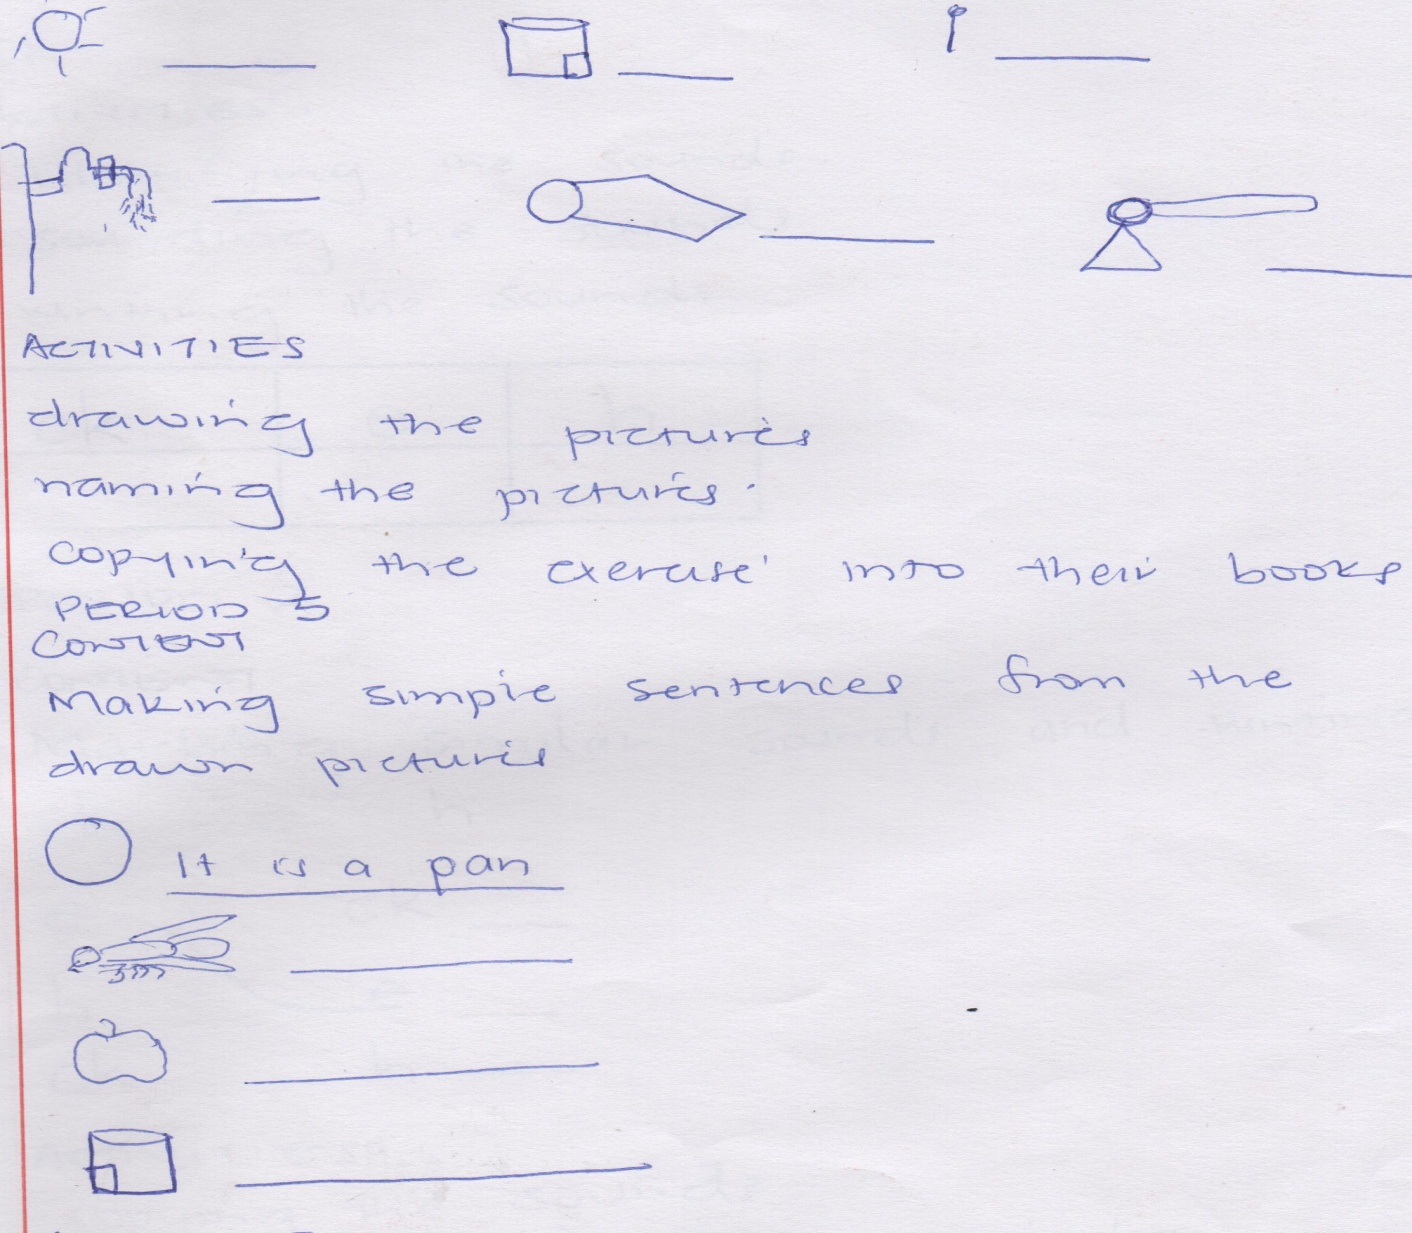 ACTIVITIES
drawing the pictures
naming the pictures.
Copying the exercise into their books
PERIOD 5
CONTENT
Making simple sentences from the
drawn pictures
It is a pan